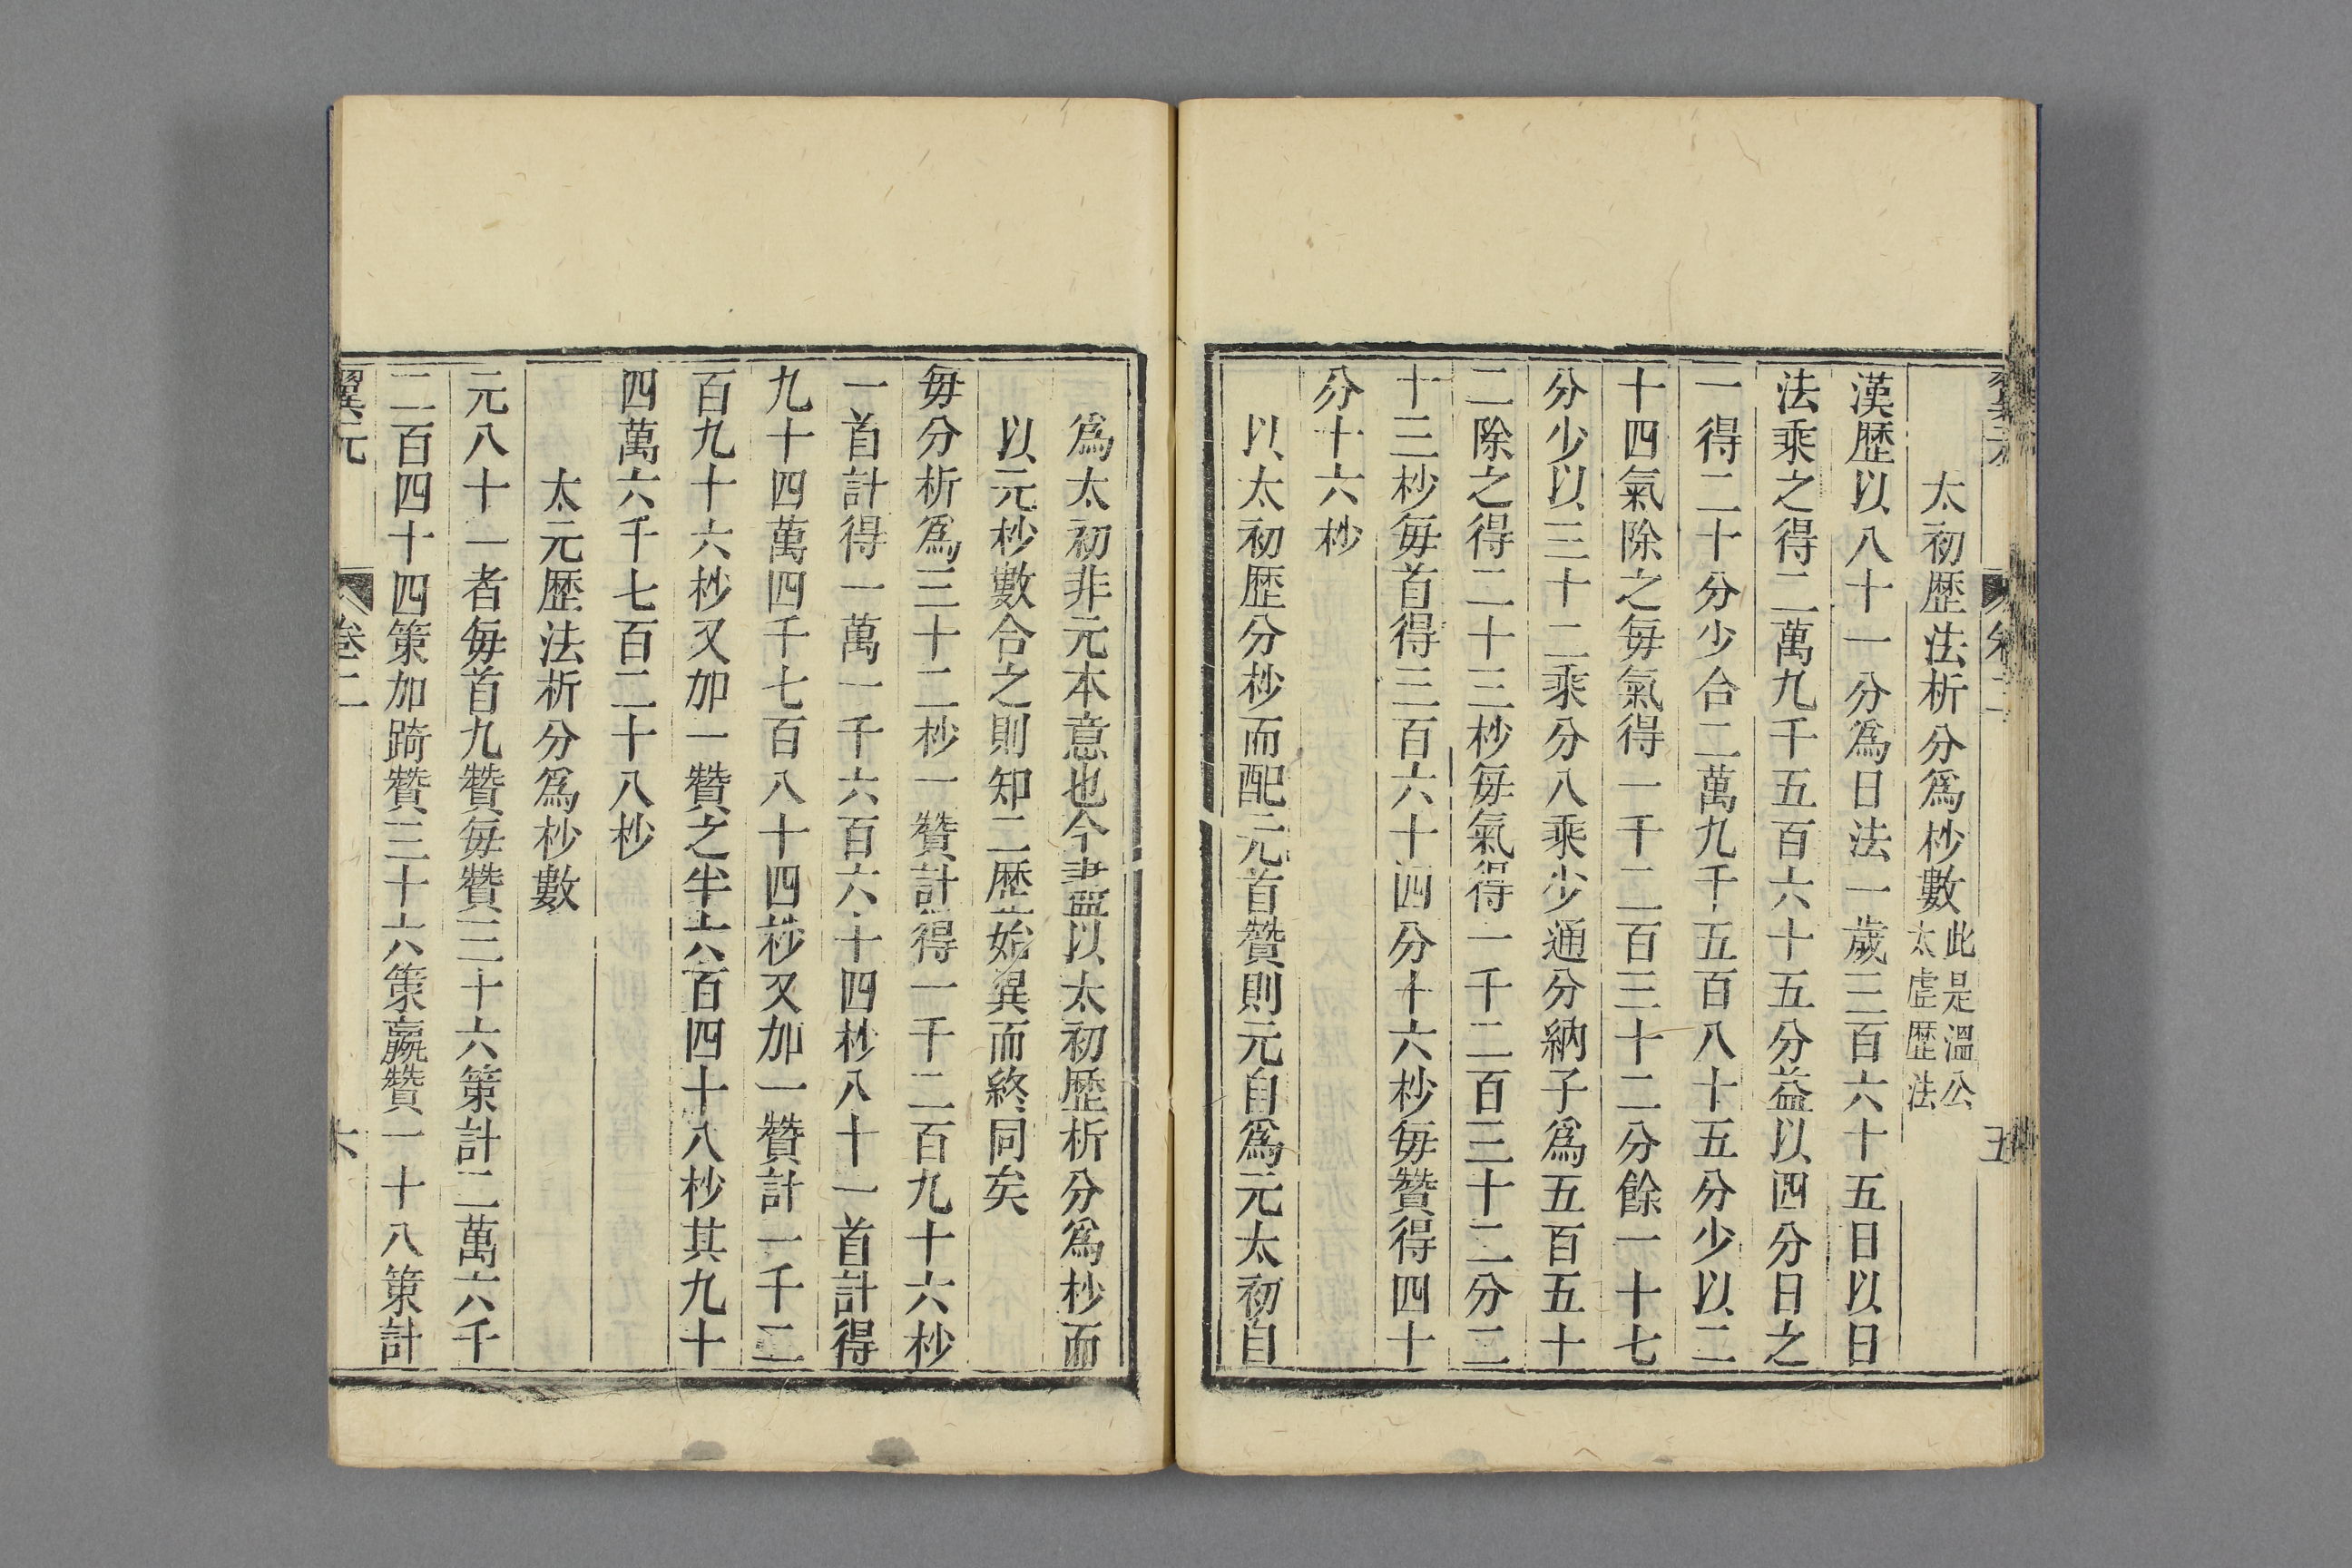 翼元 卷二 五
太初歷法析分爲杪數此是溫公太虛歷法
漢歷以八十一分爲日法一歲三百六十五日以日
法乘之得二萬九千五百六十五分益以四分日之
一得二十分少合二萬九千五百八十五分少以二
十四氣除之每氣得一千二百三十二分餘一十七
分少以三十二乘分八乘少通分納子爲五百五十
二除之得二十三杪每氣得一千二百三十二分二
十三杪每首得三百六十四分十六杪每贊得四十
分十六杪
以太初歷分杪而配元首贊則元自爲元太初自
爲太初非元本意也今盡以太初歷析分爲杪而
以元杪數合之則知二歷始異而終同矣
每分析爲三十二杪一贊計得一千二百九十六杪
一首計得一萬一千六百六十四杪八十一首計得
九十四萬四千七百八十四杪又加一贊計一千二
百九十六杪又加一贊之半六百四十八杪其九十
四萬六千七百二十八杪
太元歷法析分爲杪數
元八十一者每首九贊每贊三十六策計二萬六千
二百四十四策加踦贊三十六策嬴贊一十八策計
翼元 卷二 六